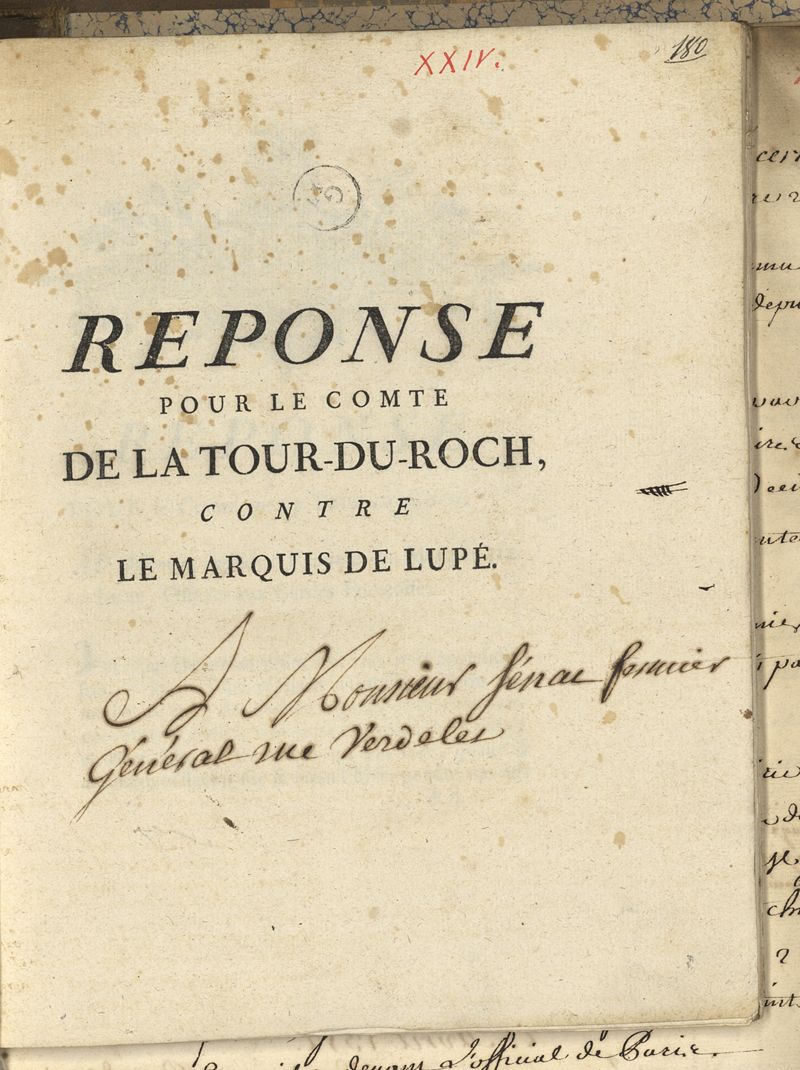 XXIV.
180
REPONSE
POUR LE COMTE
DE LA TOUR-DU-ROCH,
CONTRE
LE MARQUIS DE LUPÉ.
A Monsieur Sénac fermier
Général rue Verdelet
devant L'official de Paris.